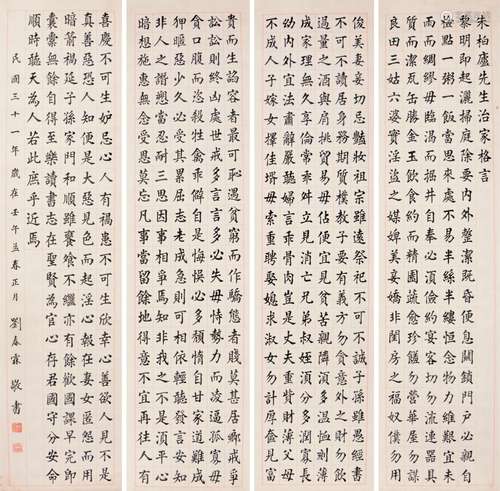 朱柏廬先生治家格言
黎明即起灑掃庭除要內外整潔既昏便息關鎖門戶必親自
檢點一粥一飯當思來處不易半絲半縷恆念物力維艱宜未
雨而綢繆毋臨渴而掘井自奉必須儉約宴客切勿流連器具
質而潔瓦缶勝金玉飲食約而精園蔬愈珍饈勿營華屋勿謀
良田三姑六婆實淫盜之媒婢美妾嬌非閨房之福奴僕勿用
俊美妻妾切忌豔妝祖宗雖遠祭祀不可不誠子孫雖愚經書
不可不讀居身務期質樸教子要有義方勿貪意外之財勿飲
過量之酒與肩挑貿易毋佔便宜見貧苦親鄰須多溫恤刻薄
成家理無久享倫常乖舛立見消亡兄弟叔姪須多分潤寡長
幼內外宜法肅辭嚴聽婦言乖骨肉豈是丈夫重貲財薄父母
不成人子嫁女擇佳壻毋索重聘娶媳求淑女勿計厚奩見富
貴而生諂容者最可恥遇貧窮而作驕態者賤莫甚居鄉戒爭
訟訟則終凶處世戒多言言多必失毋恃勢力而凌逼孤寡勿
貪口腹而恣殺牲禽乖僻自是悔悞必多頹惰自甘家道難成
狎暱惡少久必受其累屈志老成急則可相依輕聽發言安知
非人之譖愬當忍耐三思因事相爭焉知非我之不是須平心
暗想施惠無念受恩莫忘凡事當留餘地得意不宜再往人有
喜慶不可生妒忌心人有禍患不可生欣幸心善欲人見不是
真善惡恐人知便是大惡見色而起淫心報在妻女匿怨而用
暗箭禍延子孫家門和順雖饔飧不繼亦有餘歡國課早完即
囊橐無餘自得至樂讀書志在聖賢為官心存君國守分安命
順時聽天為人若此庶乎近焉
民國三十一年歲在壬午孟春正月 劉春霖敬書